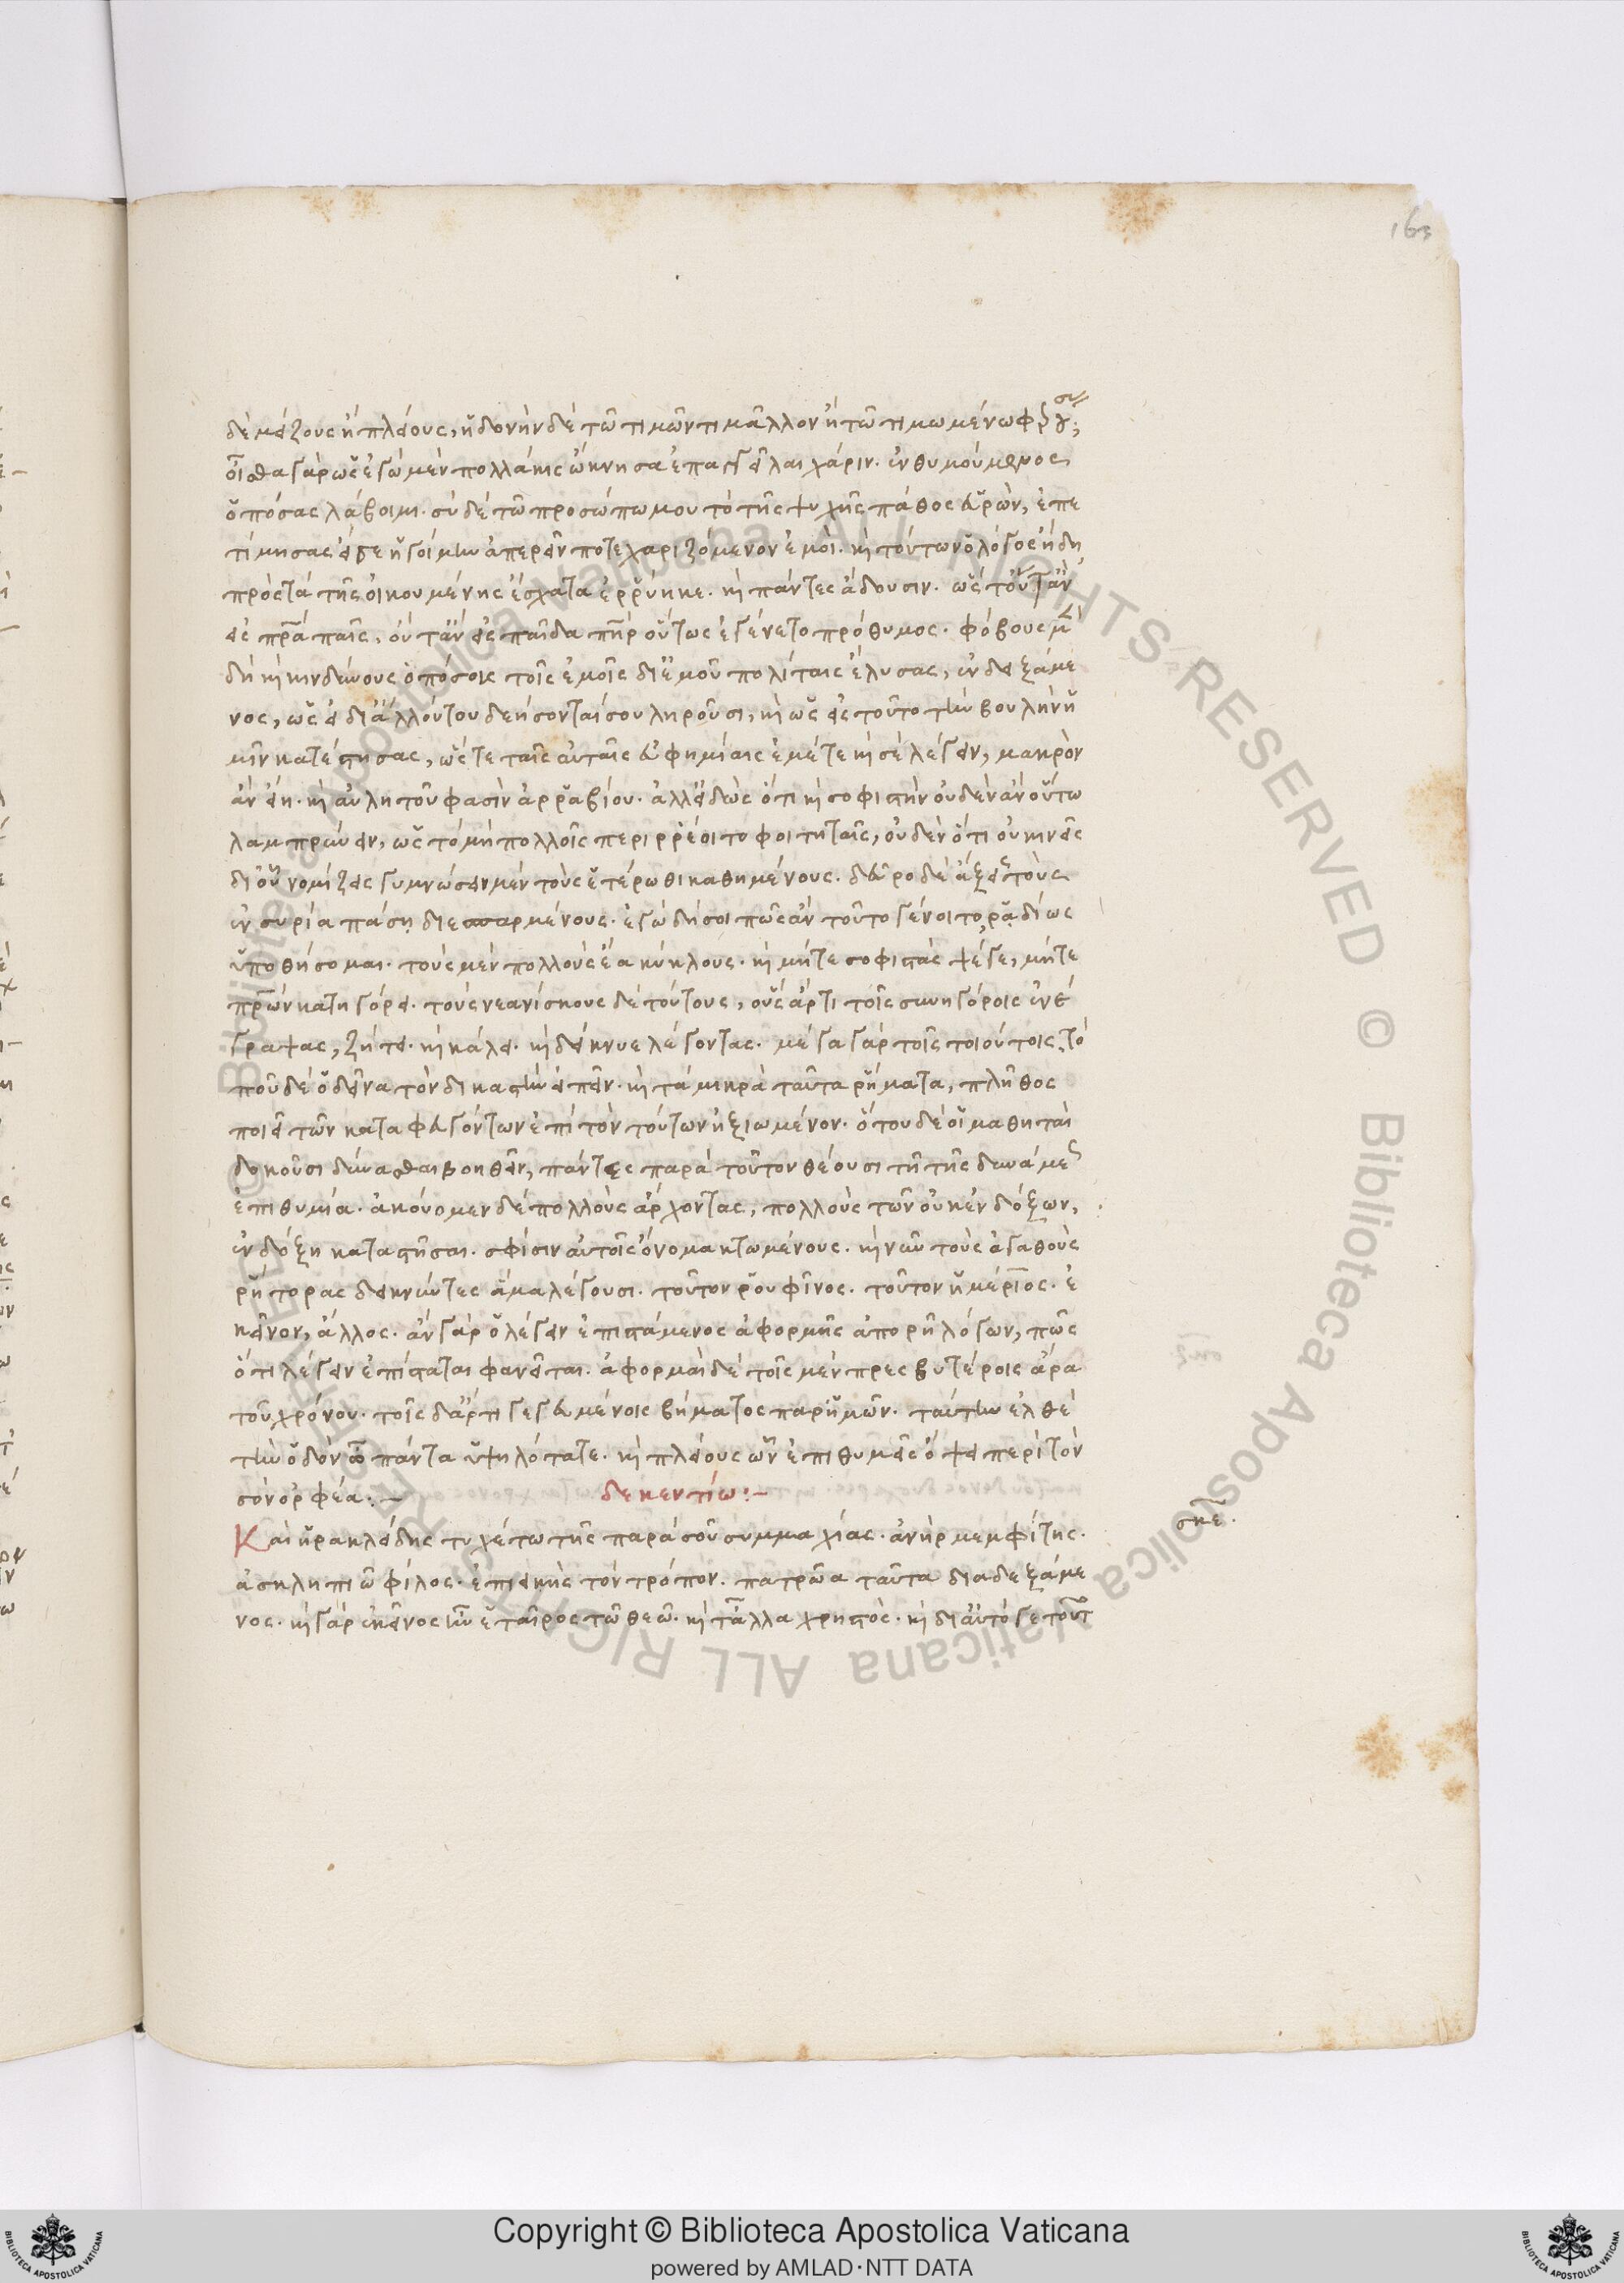 163
δὲ μείζους ἢ πλείους, ἡδονὴν δὲ τῶ τιμῶντι μᾶλλον ἢ τῶ τιμωμένω φέρουσι;
οἶσθα γὰρ ὡς ἐγὼ μὲν πολλάκις ὤκνησα ἐπαγγεῖλαι χάριν. ἐνθυμούμενος
ὁπόσας λάβοιμι. σὺ δὲ τῶ προσώπω μου τὸ τῆς ψυχῆς πάθος εὑρὼν, ἐπε
τίμησας εἴγε ἡγοίμην ἀπερεῖν ποτε χαριζόμενον ἐμοί. καὶ τούτων ὁ λόγος ἤδη
πρὸς τὰ τῆς οἰκουμένης ἔσχατα ἐρρύηκε. καὶ πάντες ἄδουσιν. ὡς οὔτ' ἂν
εἰς πρα παῖς, οὔτ' ἂν εἰς παῖδα πηρ οὕτως ἐγένετο πρόθυμος. φόβους μὲν
δὴ καὶ κινδύνους ὁπόσοις τοῖς ἐμοῖς δι' ἐμοῦ πολίταις ἔλυσας, ἐνδειξάμε
νος, ὡς εἰ δι' ἄλλου του δεήσονταί σου ληροῦσι, καὶ ὡς εἰς τοῦτο τὴν βουλὴν ἡ
μῖν κατέστησας, ὥστε ταῖς αὐταῖς εὐφημίαις ἐμέ τε καὶ σὲ λέγειν, μακρὸν
ἂν εἴη. καὶ αὐλητοῦ φασὶν ἀρραβίου. ἀλλ' εἰδὼς ὅτι καὶ σοφιστὴν οὐδὲν ἂν οὕτω
λαμπρύνειν, ὡς τὸ μὴ πολλοῖς περιρρέοιτο φοιτηταῖς, οὐδὲν ὅτι οὐ κινεῖς
δι' οὗ νομίζεις γυμνώσειν μὲν τοὺς ἑτέρωθι καθημένους. δεῦρο δὲ ἄξειν τοὺς
ἐν συρία πάση διεσπαρμένους. ἐγὼ δή σοι πῶς ἂν τοῦτο γένοιτο ῥαδίως
ὑποθήσομαι. τοὺς μὲν πολλοὺς ἔα κύκλους. καὶ μήτε σοφιστὰς ψέγε, μήτε
πρων κατηγόρει. τοὺς νεανίσκους δὲ τούτους, οὓς ἄρτι τοῖς συνηγόροις ἐνέ
γραψας, ζήτει. καὶ κάλει. καὶ δείκνυε λέγοντας. μέγα γὰρ τοῖς τοιούτοις τὸ
ποῦ δὲ ὁ δεῖνα τὸν δικαστὴν εἰπεῖν. καὶ τὰ μικρὰ ταῦτα ῥήματα, πλῆθος
ποιεῖ τῶν καταφευγόντων ἐπὶ τὸν τούτων ἠξιωμένον. ὅτου δὲ οἱ μαθηταὶ
δοκοῦσι δύνασθαι βοηθεῖν, πάντες παρὰ τοῦτον θέουσι τῆ τῆς δυνάμεως
ἐπιθυμία. ἀκούομεν δὲ πολλοὺς ἄρχοντας, πολλοὺς τῶν οὐκ ἐνδόξων,
ἐν δόξη καταστῆσαι. σφίσιν αὐτοῖς ὄνομα κτωμένους. καὶ νῦν τοὺς ἀγαθοὺς
ῥήτορας δεικνύντες ἅμα λέγουσι. τοῦτον ῥουφῖνος. τοῦτον ἡμέριος. ἐ
κεῖνον, ἄλλος. ἂν γὰρ ὁ λέγειν ἐπιστάμενος ἀφορμῆς ἀπορῆ λόγων, πῶς
ὅτι λέγειν ἐπίσταται φανεῖται. ἀφορμαὶ δὲ τοῖς μὲν πρεσβυτέροις ἄρα
τοῦ χρόνου. τοῖς δ' ἄρτι γεγευμένοις βήματος παρ' ἡμῶν. ταύτην ἐλθὲ
τὴν ὁδὸν ὦ πάντα ὑψηλότατε. καὶ πλείους ὧν ἐπιθυμεῖς ὄψει περὶ τὸν
σὸν ὀρφέα:—
δεκεντίω:—
Καὶ ἡρακλείδης τυχέτω τῆς παρὰ σοῦ συμμαχίας. ἀνὴρ μεμφίτης.
ἀσκληπιῶ φίλος. ἐπιεικὴς τὸν τρόπον. πατρῶα ταῦτα διαδεξάμε
νος. καὶ γὰρ ἐκεῖνος ἦν ἑταῖρος τῶ θεῶ. καὶ τἄλλα χρηστός. καὶ δι' αὐτό γε τοῦτο
σκε.
Copyright © Biblioteca Apostolica Vaticana
powered by AMLAD·NTT DATA